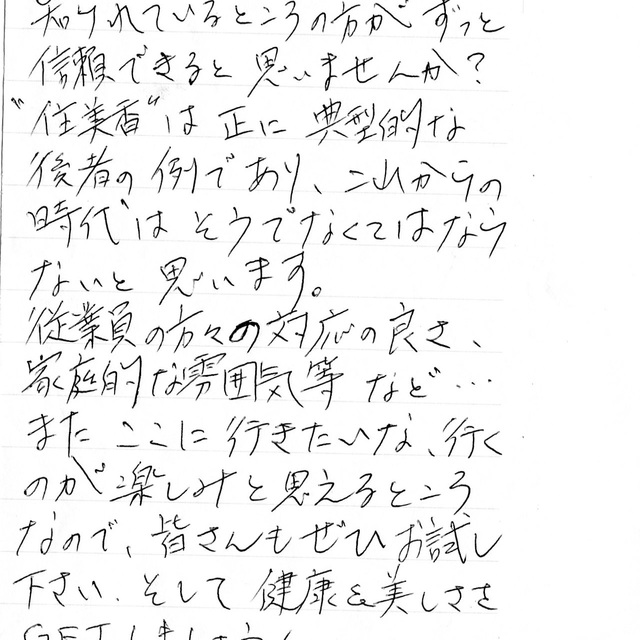 知られているところの方が ずっと
信頼できると 思いませんか？
"住美香"は 正に 典型的な
後者の 例であり、これからの
時代は そうでなくてはなら
ないと 思います。
従業員の方々の対応の良さ、
家庭的な雰囲気等 など…
また ここに 行きたいな、行く
のが 楽しみと 思えるところ
なので、皆さんも ぜひ お試し
下さい. そして 健康&美しさを
GETしましょう!